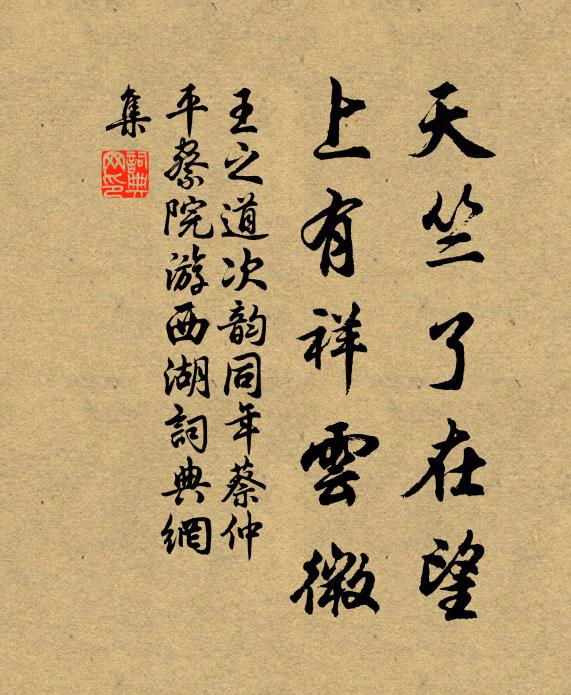 天竺了在望
上有祥雲微
王之道次韵同年蔡仲
平察院游西湖詞典網
集
詞典
网印